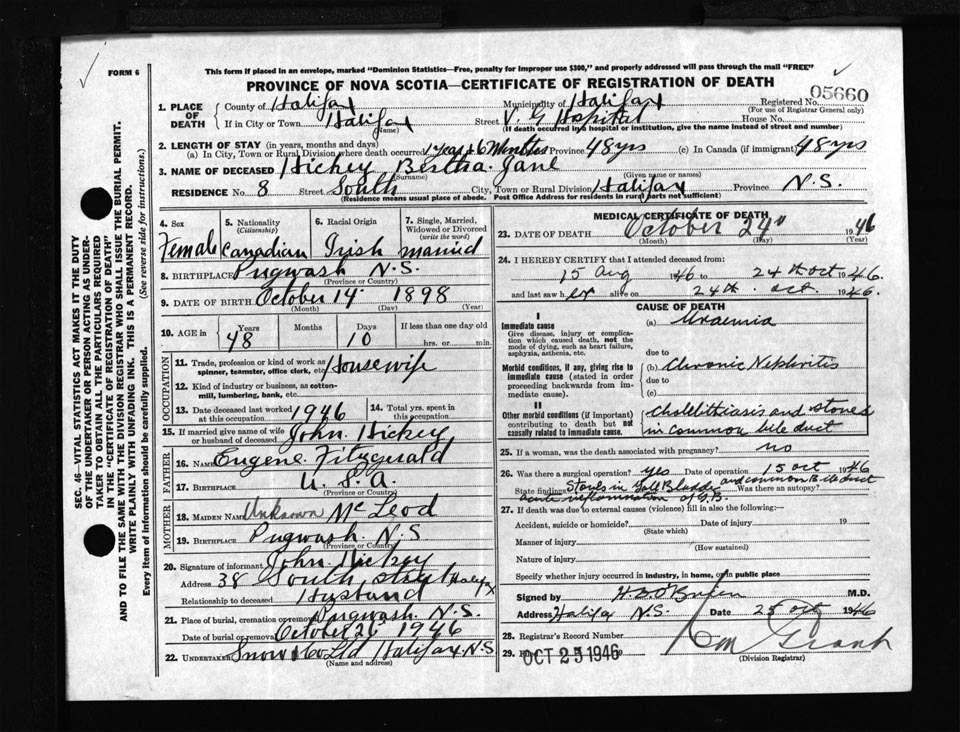 FORM 6
This form if placed in an envelope, marked "Dominion Statistics—Free, penalty for improper use $300," and properly addressed will pass through the mail "FREE"
PROVINCE OF NOVA SCOTIA—CERTIFICATE OF REGISTRATION OF DEATH
05660
1. PLACE OF DEATH County of Halifax Municipality of Halifax Registered No.
(For use of Registrar General only)
If in City or Town Halifax (Name) Street V. G Hospital House No.
(If death occurred in a hospital or institution, give the name instead of street and number)
2. LENGTH OF STAY (in years, months and days)
(a) In City, Town or Rural Division where death occurred 1 year & 6 Months Province 48 yrs (c) In Canada (if immigrant) 48 yrs
3. NAME OF DECEASED Hickey Bertha Jane
(Surname) (Given name or names)
RESIDENCE No. 8 Street South City, Town or Rural Division Halifax Province N.S.
(Residence means usual place of abode. Post Office Address for residents in rural parts not sufficient)
SEC. 46—VITAL STATISTICS ACT MAKES IT THE DUTY
OF THE UNDERTAKER OR PERSON ACTING AS UNDER-
TAKER TO OBTAIN ALL THE PARTICULARS REQUIRED
IN THE "CERTIFICATE OF REGISTRATION OF DEATH"
AND TO FILE THE SAME WITH THE DIVISION REGISTRAR WHO SHALL ISSUE THE BURIAL PERMIT.
WRITE PLAINLY WITH UNFADING INK. THIS IS A PERMANENT RECORD.
Every item of information should be carefully supplied. (See reverse side for instructions.)
4. Sex Female
5. Nationality (Citizenship) Canadian
6. Racial Origin Irish
7. Single, Married, Widowed or Divorced (write the word) married
8. BIRTHPLACE Pugwash N.S.
(Province or Country)
9. DATE OF BIRTH October 14 1898
(Month) (Day) (Year)
10. AGE in Years 48 Months Days 10 If less than one day old hrs. or min.
OCCUPATION
11. Trade, profession or kind of work as spinner, teamster, office clerk, etc. Housewife
12. Kind of industry or business, as cotton-mill, lumbering, bank, etc.
13. Date deceased last worked at this occupation 1946
14. Total yrs. spent in this occupation
15. If married give name of wife or husband of deceased John Hickey
FATHER
16. NAME Eugene Fitzgerald
17. BIRTHPLACE U.S.A.
(Province or Country)
MOTHER
18. MAIDEN NAME Unknown McLeod
19. BIRTHPLACE Pugwash N.S
(Province or Country)
20. Signature of informant John Hickey
Address 38 South street Halifax
Relationship to deceased Husband
21. Place of burial, cremation or removal Pugwash N.S.
Date of burial or removal October 26 1946
22. UNDERTAKER Snow & Co Ltd Halifax N.S
(Name and address)
MEDICAL CERTIFICATE OF DEATH
23. DATE OF DEATH October 24 1946
(Month) (Day) (Year)
24. I HEREBY CERTIFY that I attended deceased from:
15 Aug 1946 to 24th Oct 1946.
and last saw her alive on 24th. oct. 1946.
CAUSE OF DEATH
I
Immediate cause (a) Uraemia
Give disease, injury or complication which caused death, not the mode of dying, such as heart failure, asphyxia, asthenia, etc.
due to
Morbid conditions, if any, giving rise to immediate cause (stated in order proceeding backwards from immediate cause).
(b) Chronic Nephritis
due to
(c)
II
Other morbid conditions (if important) contributing to death but not causally related to immediate cause.
Cholelithiasis and stones
in common bile duct
25. If a woman, was the death associated with pregnancy? no
26. Was there a surgical operation? yes Date of operation 15 oct 1946
State findings Stones in Gall Bladder and common bile duct Was there an autopsy?
acute inflammation of G.B.
27. If death was due to external causes (violence) fill in also the following:—
Accident, suicide or homicide? Date of injury 19
(State which)
Manner of injury
(How sustained)
Nature of injury
Specify whether injury occurred in industry, in home, or in public place
Signed by H. D. O'Brien M.D.
Address Halifax N.S. Date 25 Oct 1946
28. Registrar's Record Number
29. OCT 25 1946
(Division Registrar)